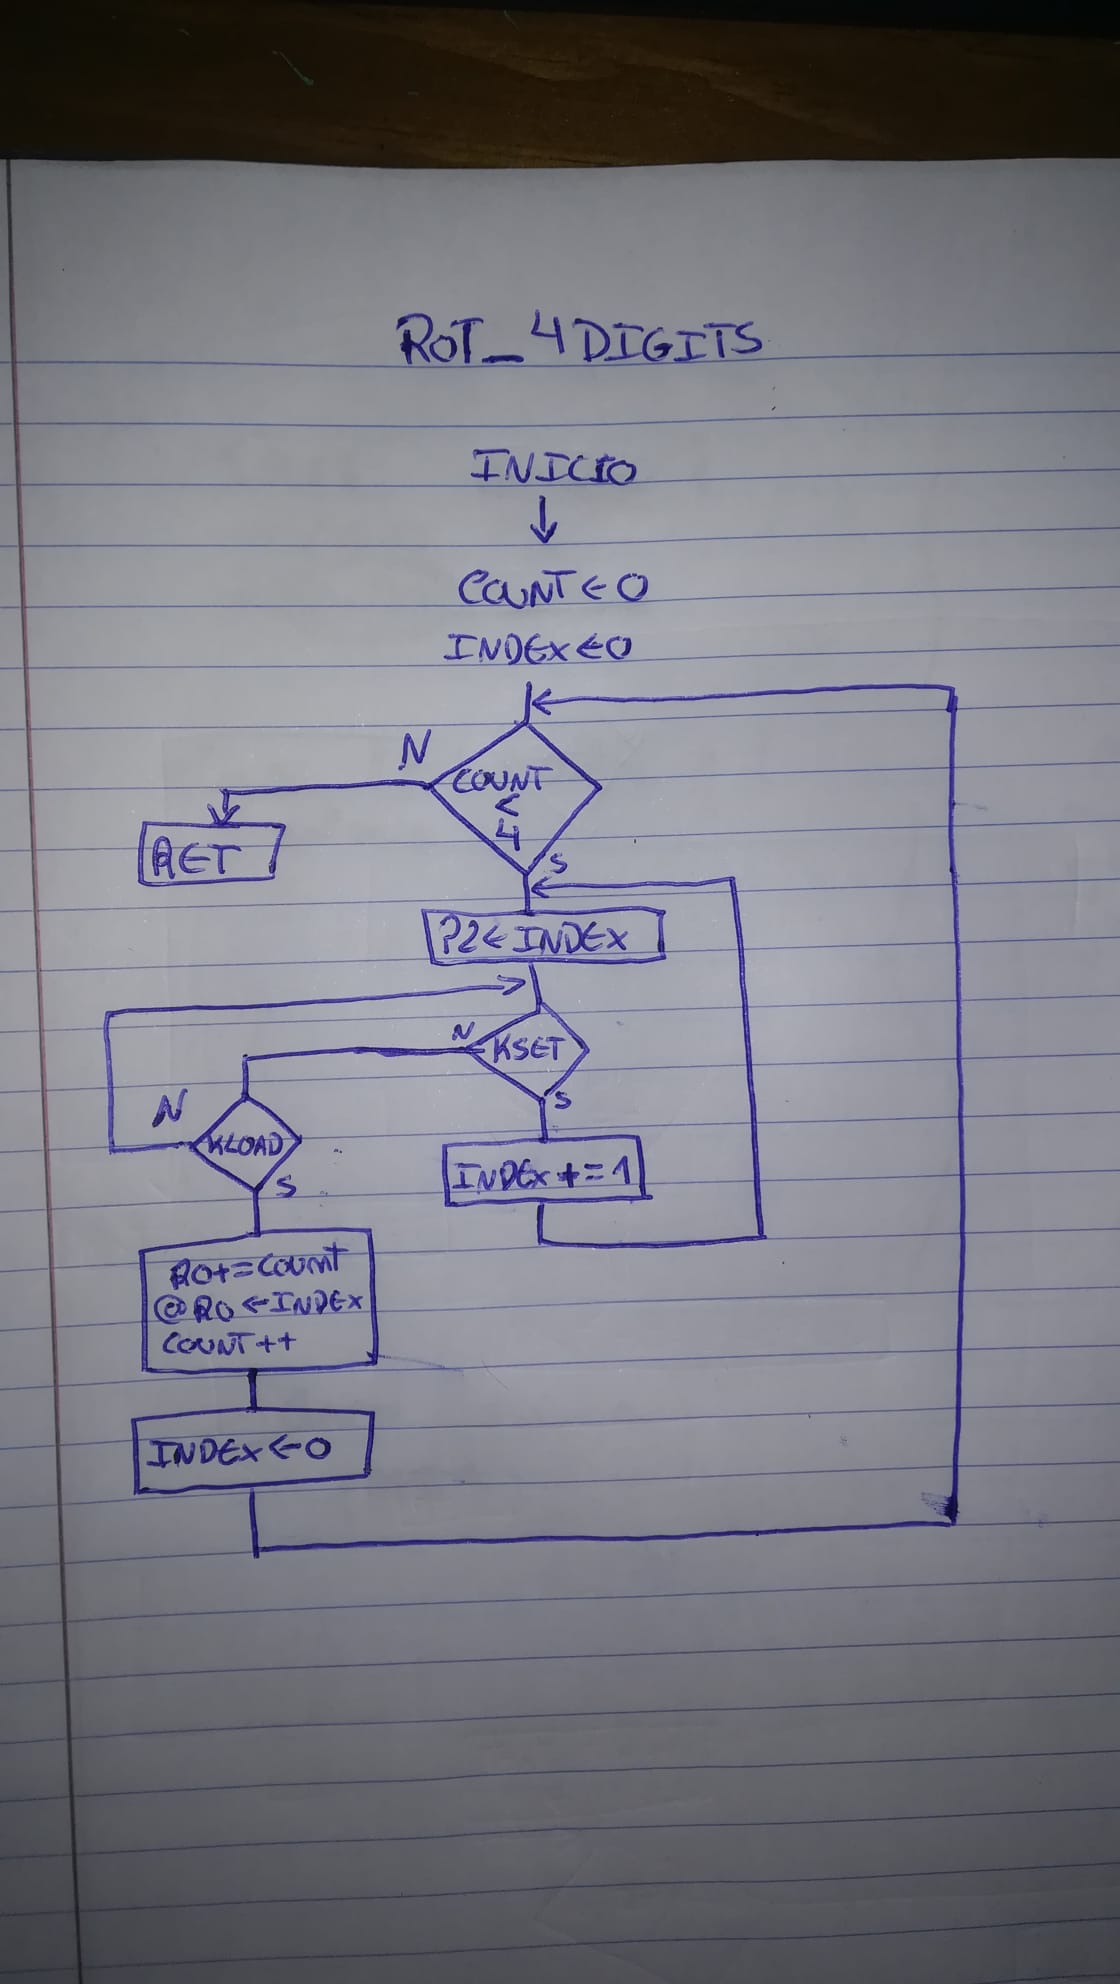 ROT_4DIGITS
INICIO
COUNT←0
INDEX←0
N
COUNT
<
4
S
RET
P2←INDEX
N
KSET
S
N
KLOAD
S
INDEX+=1
R0+=COUNT
@R0←INDEX
COUNT++
INDEX←0